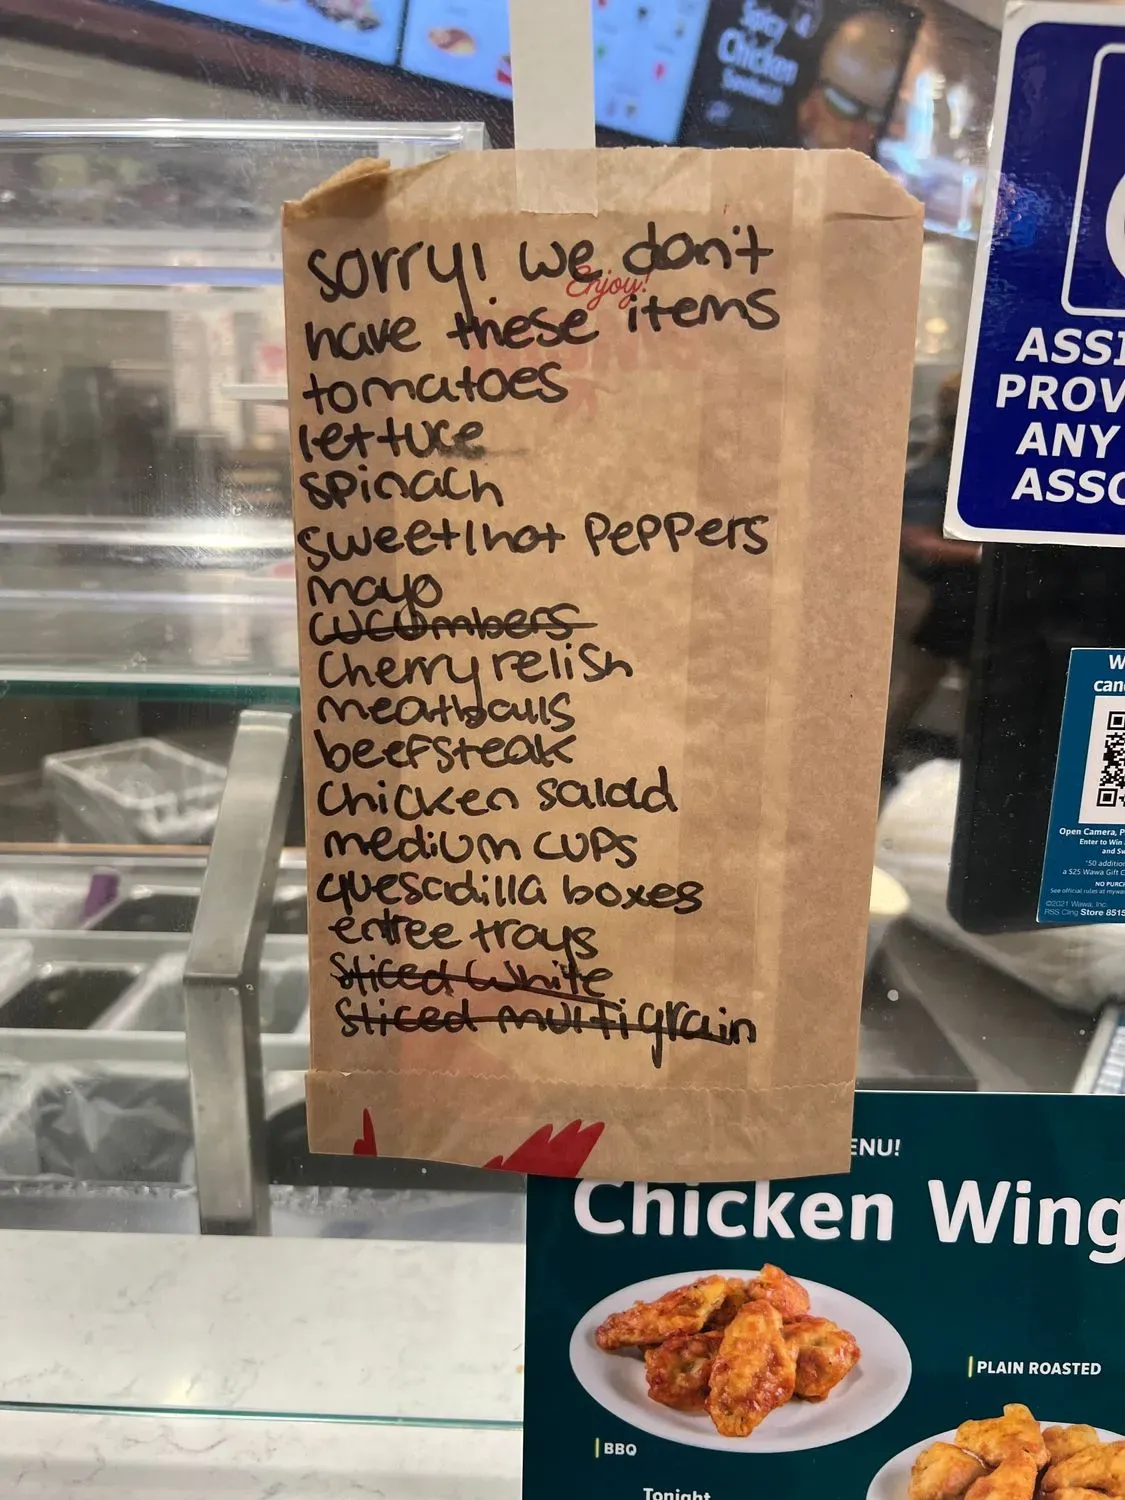 Spicy
Chicken
Sandwich
sorry! we don't
Enjoy!
have these items
tomatoes
lettuce
spinach
sweet/hot peppers
mayo
cucumbers
cherry relish
meatballs
beefsteak
chicken salad
medium cups
quesadilla boxes
entree trays
sliced white
sliced multigrain
ASSI
PROV
ANY
ASSO
W
can
Open Camera, P
Enter to Win
and Sw
*50 addition
a $25 Wawa Gift C
NO PURC
See official rules at mywaw
©2021 Wawa, Inc.
RSS Cling Store 8515
ENU!
Chicken Wing
PLAIN ROASTED
BBQ
Tonight